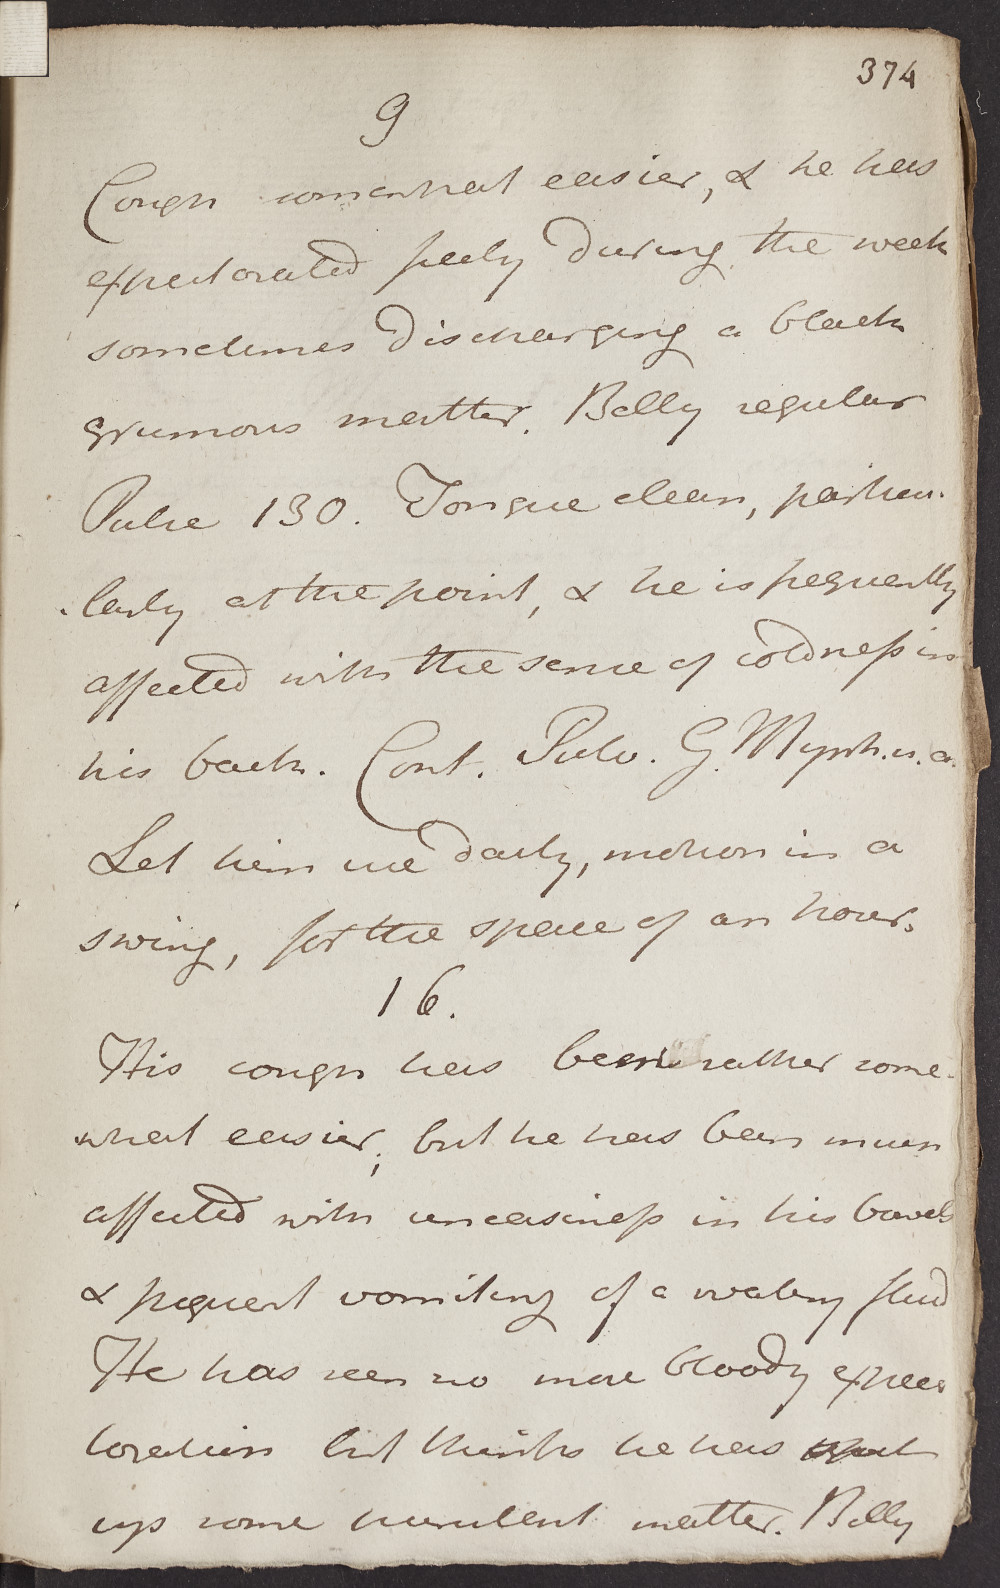 374
9
Cough somewhat easier, & he has
expectorated freely during the week
sometimes discharging a black
grumous matter. Belly regular
Pulse 130. Tongue clean, particu-
-larly at the point, & he is frequently
affected with the sense of coldneſs in
his back. Cont. Pulv. G. Myrrh. u. a.
Let him use daily, motion in a
swing, for the space of an hour.
16.
His cough has been rather some-
what easier; but he has been much
affected with uneasineſs in his bowels
& frequent vomiting of a watery fluid
He has seen no more bloody expec
toration but thinks he has
up some purulent matter. Belly